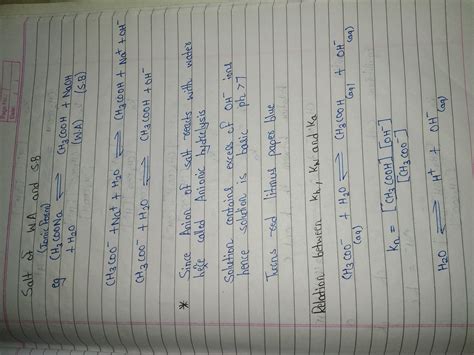 Salt of W.A and S.B
(Ionic Form)
eg CH3COONa + H2O ⇌ CH3COOH + NaOH
(WA) (S.B)
CH3COO⁻ + Na⁺ + H2O ⇌ CH3COOH + Na⁺ + OH⁻
CH3COO⁻ + H2O ⇌ CH3COOH + OH⁻
* Since Anion of salt reacts with water
called Anionic hydrolysis
Solution contains excess of OH⁻ ions
hence solution is basic pH >7
Turns red litmus paper blue
Relation between Kh, Kw and Ka
CH3COO⁻(aq) + H2O ⇌ CH3COOH(aq) + OH⁻(aq)
Kh = [CH3COOH] [OH⁻]
[CH3COO⁻]
H2O ⇌ H⁺ + OH⁻(aq)